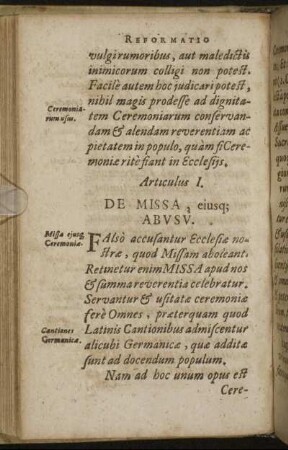 REFORMATIO
vulgi rumoribus, aut maledictis
inimicorum colligi non potest.
Facilè autem hoc judicari potest,
nihil magis prodesse ad dignita-
Ceremonia-
rum usus.
tem Ceremoniarum conservan-
dam & alendam reverentiam ac
pietatem in populo, quàm si Cere-
moniæ ritè fiant in Ecclesijs.
Articulus I.
DE MISSA, eiusq;
ABUSU.
Missa ejusq́
Ceremoniæ.
FAlsò accusantur Ecclesiæ no-
stræ, quod Missam aboleant.
Retinetur enim MISSA apud nos
& summa reverentia celebratur.
Servantur & usitatæ ceremoniæ
ferè Omnes, præterquam quod
Cantiones
Germanicæ.
Latinis Cantionibus admiscentur
alicubi Germanicæ, quæ additæ
sunt ad docendum populum.
Nam ad hoc unum opus est
Cere-